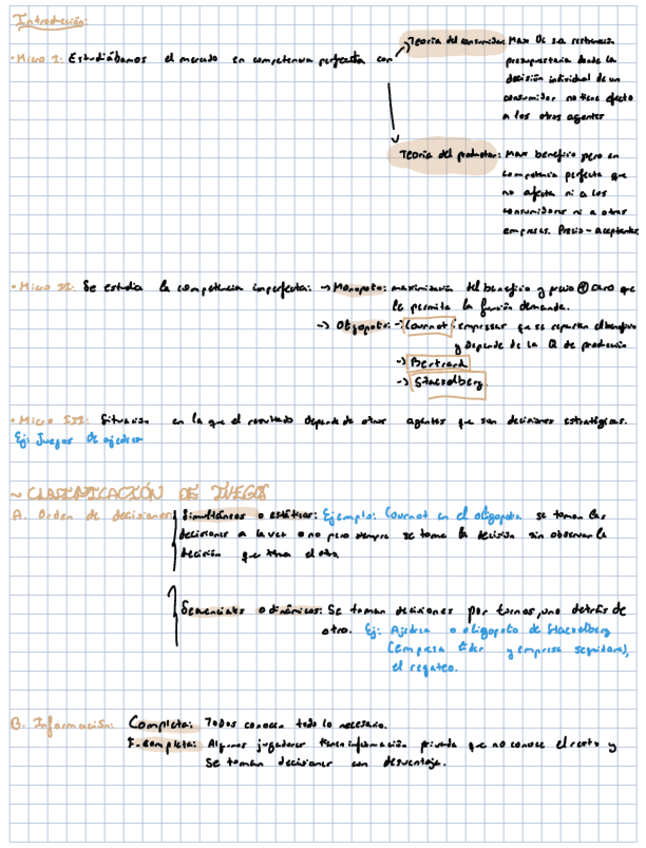 Introducción:
· Micro I: Estudiábamos el mercado en competencia perfecta con
Teoría del consumidor: Max de su restricción
presupuestaria donde la
decisión individual de un
consumidor no tiene efecto
a los otros agentes
Teoría del productor: Max beneficio pero en
competencia perfecta que
no afecta ni a los
consumidores ni a otras
empresas. Precio-aceptante
· Micro II: Se estudia la competencia imperfecta: → Monopolio: maximización del beneficio y precio ⊕ caro que
le permita la función demanda.
→ Oligopolio: → Cournot: empresas que se reparten el beneficio
y depende de la Q de producción
→ Bertrand
→ Stackelberg
· Micro III: Situación en la que el resultado depende de otros agentes que son decisiones estratégicas.
Ej: Juegos de ajedrez
~ CLASIFICACIÓN DE JUEGOS
A. Orden de decisiones: Simultáneos o estáticos: Ejemplo: Cournot en el oligopolio se toman las
decisiones a la vez o no pero siempre se toma la decisión sin observar la
decisión que toma el otro
Secuenciales o dinámicos: Se toman decisiones por turnos, uno detrás de
otro. Ej: Ajedrez o oligopolio de Stackelberg
(empresa líder y empresa seguidora),
el regateo.
B. Información: Completa: Todos conocen todo lo necesario.
I. completa: Algunos jugadores tienen información privada que no conoce el resto y
se toman decisiones con desventaja.